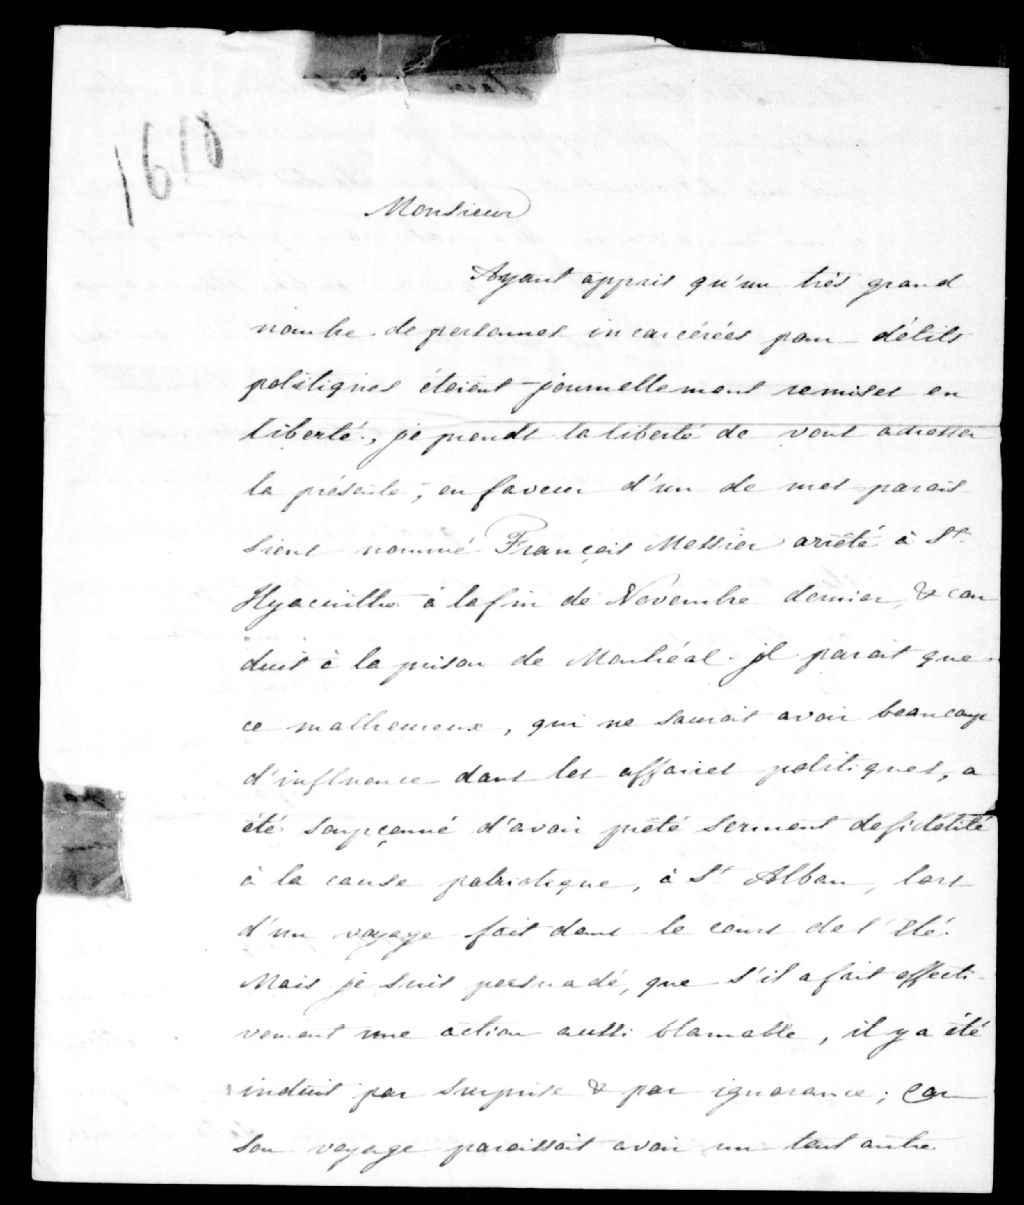 1610
Monsieur
Ayant appris qu'un très grand
nombre de personnes incarcérées pour délits
politiques étoient journellement remises en
liberté, je prends la liberté de vous adresser
la présente, en faveur d'un de mes parois-
siens nommé François Messier arrêté à St.
Hyacinthe à la fin de Novembre dernier, & con
duit à la prison de Montréal. jl parait que
ce malheureux, qui ne saurait avoir beaucoup
d'influence dans les affaires politiques, a
été soupçonné d'avoir prêté serment de fidélité
à la cause patriotique, à St Alban, lors
d'un voyage fait dans le cours de l'été.
Mais je suis persuadé, que s'il a fait effecti-
vement une action aussi blamable, il y a été
induit par surprise & par ignorance; car
son voyage paraissait avoir un tout autre